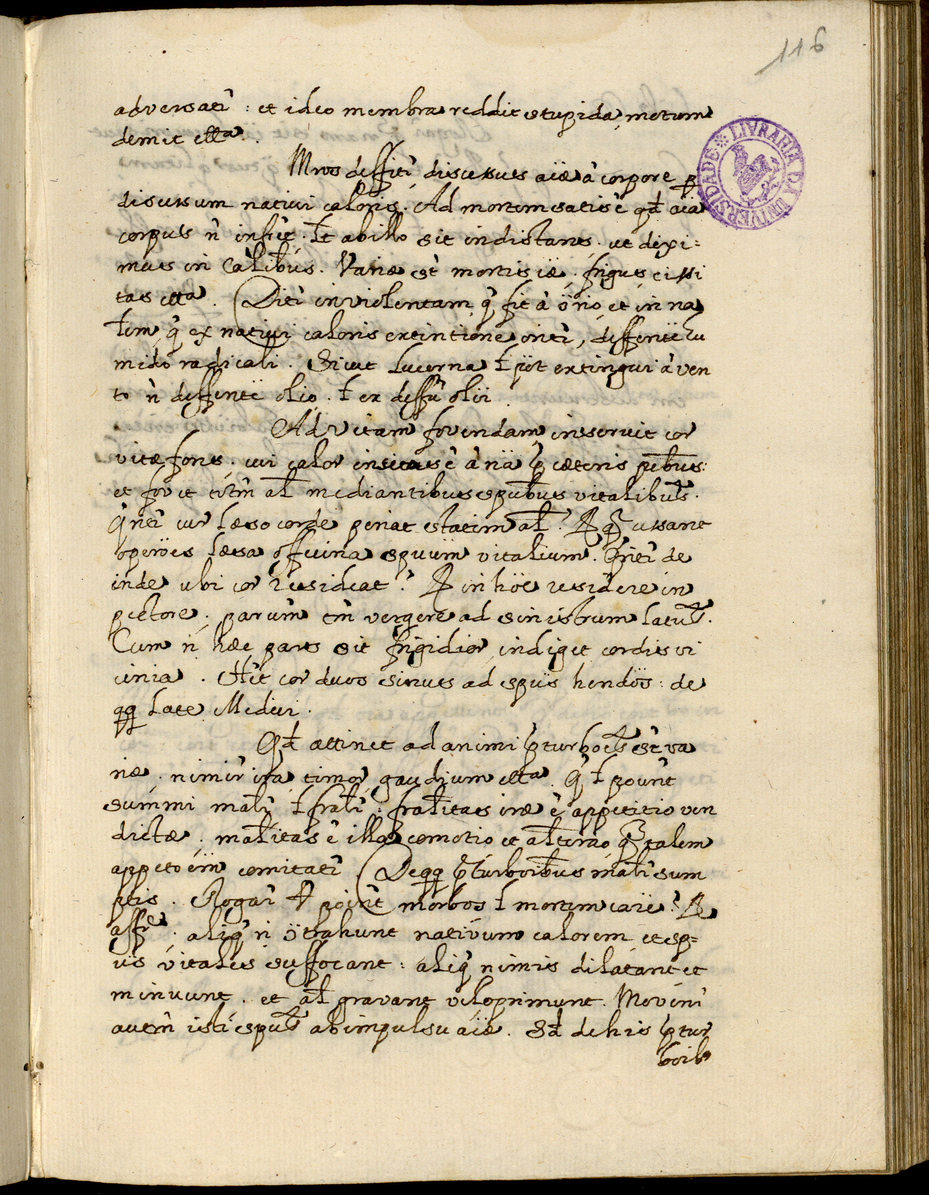 116
LIVRARIA DA UNIVERSIDADE
adversatĩ : et ideo membra reddit stupida, motum
demit etta.
Mros deffitĩ, discursus aïæ à corpore p
discursum nativi caloris. Ad mortem satis ẽ qd aïa
corpus ñ infẽt. ł ab illo sit indistans. ut dixi=
mus in Calibus. Variæ sẽt mortis iæ, frigus, sicci
tas etta. Ditĩ in violentam, q̃ fit à õno, et in na
lem, q̃ ex nativi caloris extintione oritĩ, deffentẽ hu
mido radicali. Sicut lucerna ł põt extingui à ven
to ñ deffente olio. ł ex deffũ olii.
Ad vitam fovendam inservit cor
vitæ fons. cui calor insitus ẽ à nä p cæteris ptibus:
et fovet totm al mediantibus spitbus vitalibus.
Qritĩ cur læso corde periat statim al? R qa cessant
operöes læsa officina spuum vitalium. Qritĩ de
inde ubi cor resideat? R in höe residere in
pectore. parum tm vergere ad sinistrum latus.
Cum ñ hæc pars sit frigidior, indiget cordis vi
cinia. Hẽt cor duos sinus ad spüs hendos: de
qq late Medici.
Qd attinet ad animi pturboes sẽt va
riæ. nimir ira, timor, gaudium etta. q̃ ł pount
summi malr ł fralr. fralitas iræ ẽ appetitio vin
dictæ. malitas ẽ illa comotio et alterao q̃ talem
appetoem comitatĩ. De qq pturboibus malr sum
ptis. Rogar a point morbos ł mortem caũe? R
affe. aliq̃ ñ õtrahunt nativum calorem, et sp=
üs vitales suffocant: aliq̃ nimis dilatant et
minuunt. et al gravant vel oprimunt. Movini
autm isti sputs ab impulsu aïæ. Sd de his ptur
boibs